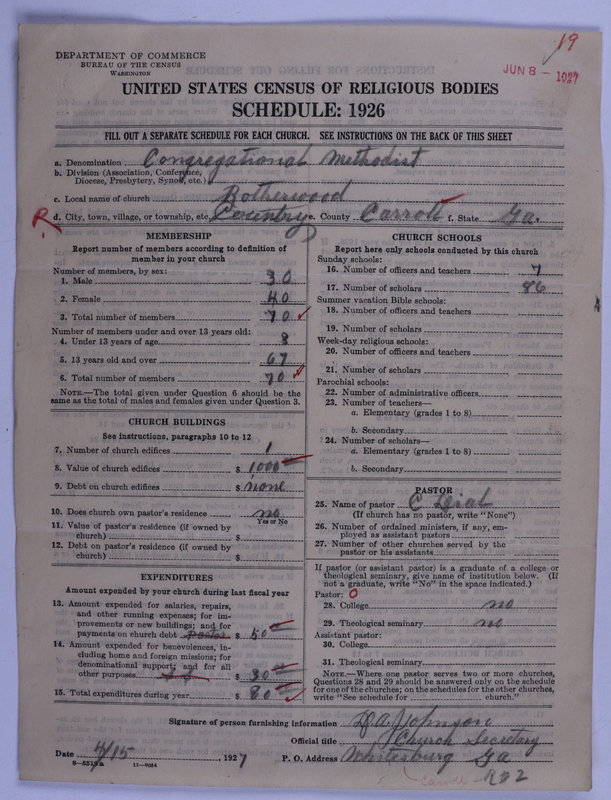 19
DEPARTMENT OF COMMERCE
BUREAU OF THE CENSUS
WASHINGTON
JUN 8 - 1927
UNITED STATES CENSUS OF RELIGIOUS BODIES
SCHEDULE: 1926
FILL OUT A SEPARATE SCHEDULE FOR EACH CHURCH. SEE INSTRUCTIONS ON THE BACK OF THIS SHEET
a. Denomination Congregational Methodist
b. Division (Association, Conference,
Diocese, Presbytery, Synod, etc.)
c. Local name of church Rotherwood
R d. City, town, village, or township, etc. Country e. County Carroll f. State Ga.
MEMBERSHIP
Report number of members according to definition of
member in your church
Number of members, by sex:
1. Male 30
2. Female 40
3. Total number of members 70
Number of members under and over 13 years old:
4. Under 13 years of age 3
5. 13 years old and over 67
6. Total number of members 70
NOTE.—The total given under Question 6 should be the
same as the total of males and females given under Question 3.
CHURCH BUILDINGS
See instructions, paragraphs 10 to 12
7. Number of church edifices 1
8. Value of church edifices $ 1000
9. Debt on church edifices $ none
10. Does church own pastor's residence? no
Yes or No
11. Value of pastor's residence (if owned by
church) $
12. Debt on pastor's residence (if owned by
church) $
EXPENDITURES
Amount expended by your church during last fiscal year
13. Amount expended for salaries, repairs,
and other running expenses; for im-
provements or new buildings; and for
payments on church debt Pastor $ 50
14. Amount expended for benevolences, in-
cluding home and foreign missions; for
denominational support; and for all
other purposes $ 30
15. Total expenditures during year $ 80
CHURCH SCHOOLS
Report here only schools conducted by this church
Sunday schools:
16. Number of officers and teachers 7
17. Number of scholars 86
Summer vacation Bible schools:
18. Number of officers and teachers
19. Number of scholars
Week-day religious schools:
20. Number of officers and teachers
21. Number of scholars
Parochial schools:
22. Number of administrative officers
23. Number of teachers—
a. Elementary (grades 1 to 8)
b. Secondary
24. Number of scholars—
a. Elementary (grades 1 to 8)
b. Secondary
PASTOR
25. Name of pastor C Dial
(If church has no pastor, write "None")
26. Number of ordained ministers, if any, em-
ployed as assistant pastors
27. Number of other churches served by the
pastor or his assistants
If pastor (or assistant pastor) is a graduate of a college or
theological seminary, give name of institution below. (If
not a graduate, write "No" in the space indicated.)
Pastor: 0
28. College no
29. Theological seminary no
Assistant pastor:
30. College
31. Theological seminary
NOTE.—Where one pastor serves two or more churches,
Questions 28 and 29 should be answered only on the schedule
for one of the churches; on the schedules for the other churches,
write "See schedule for church."
Signature of person furnishing information D A Johnson
Official title Church Secretary
Date 4/15, 1927 P. O. Address Whitesburg Ga
8-5518a 11-9034 Carroll R#2